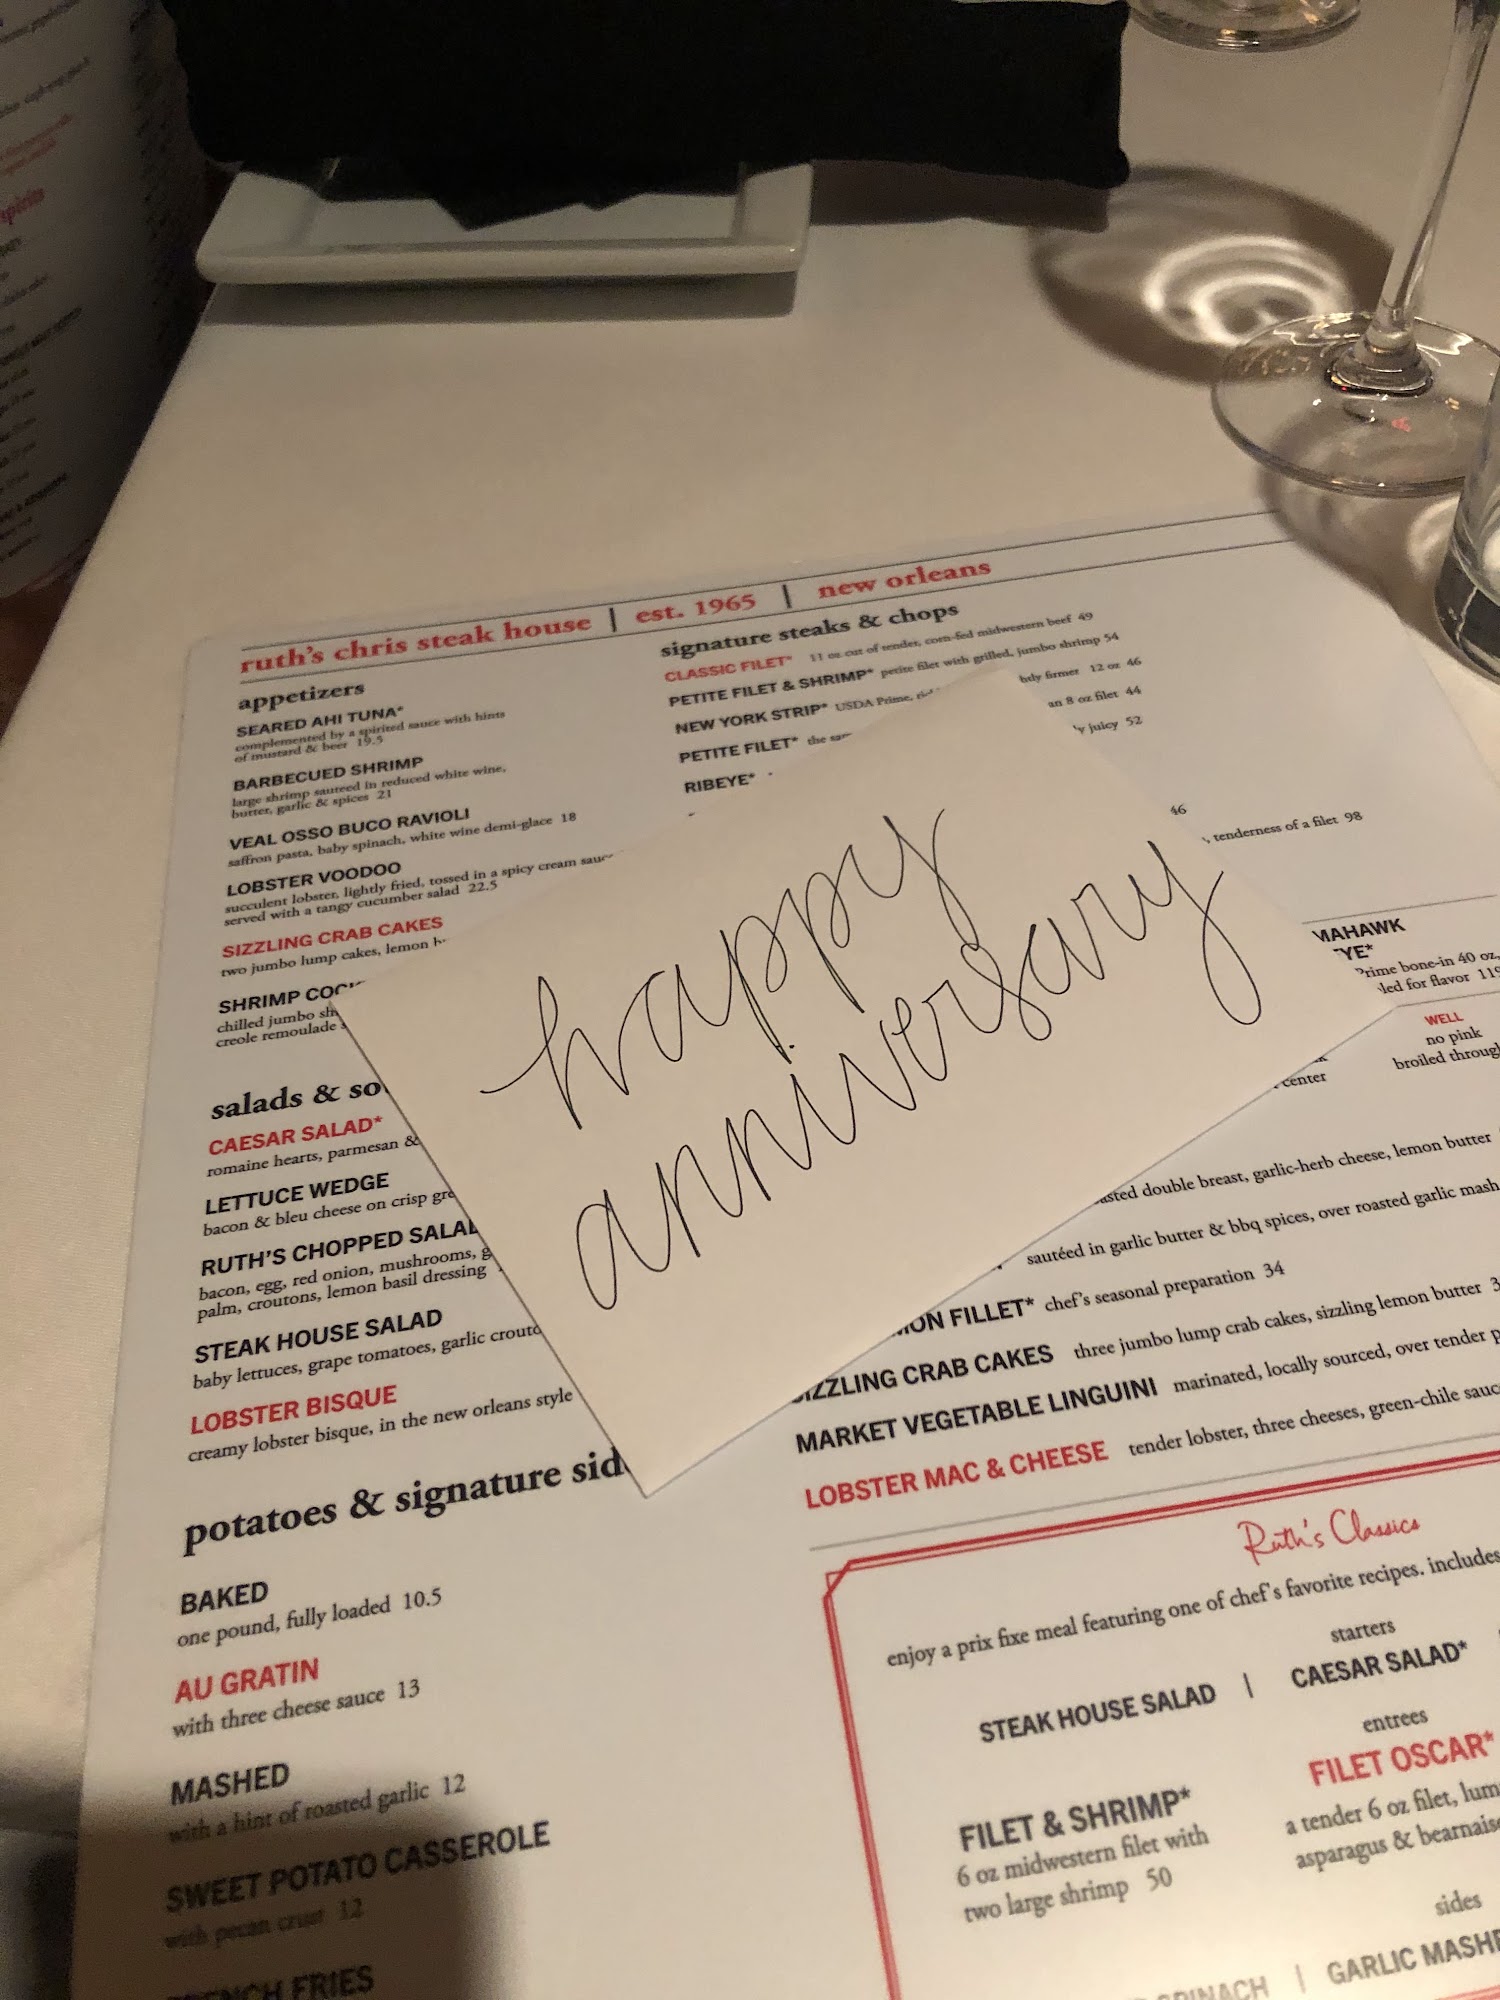 ruth's chris steak house | est. 1965 | new orleans
appetizers
SEARED AHI TUNA*
complemented by a spirited sauce with hints
of mustard & beer 19.5
BARBECUED SHRIMP
large shrimp sauteed in reduced white wine,
butter, garlic & spices 21
VEAL OSSO BUCO RAVIOLI
saffron pasta, baby spinach, white wine demi-glace 18
LOBSTER VOODOO
succulent lobster, lightly fried, tossed in a spicy cream
served with a tangy cucumber salad 22.5
SIZZLING CRAB CAKES
two jumbo lump cakes, lemon
SHRIMP
chilled jumbo
creole remoulade
salads &
CAESAR SALAD*
romaine hearts, parmesan &
LETTUCE WEDGE
bacon & bleu cheese on crisp
RUTH'S CHOPPED
bacon, egg, red onion, mushrooms,
palm, croutons, lemon basil dressing
STEAK HOUSE SALAD
baby lettuces, grape tomatoes, garlic
LOBSTER BISQUE
creamy lobster bisque, in the new orleans style
potatoes & signature
BAKED
one pound, fully loaded 10.5
AU GRATIN
with three cheese sauce 13
MASHED
with a hint of roasted garlic 12
SWEET POTATO CASSEROLE
with pecan crust 12
FRIES
signature steaks & chops
CLASSIC FILET* 11 oz cut of tender, corn-fed midwestern beef 49
PETITE FILET & SHRIMP* petite filet with grilled, jumbo shrimp 54
NEW YORK STRIP* USDA Prime, firmer 12 oz 46
PETITE FILET* the an 8 oz filet 44
RIBEYE* juicy 52
46
tenderness of a filet 98
happy
anniversary
Prime bone-in 40 oz,
for flavor 119
WELL
no pink
broiled
center
double breast, garlic-herb cheese, lemon butter
sautéed in garlic butter & bbq spices, over roasted garlic mash
FILLET* chef's seasonal preparation 34
SIZZLING CRAB CAKES three jumbo lump crab cakes, sizzling lemon butter
MARKET VEGETABLE LINGUINI marinated, locally sourced, over tender
LOBSTER MAC & CHEESE tender lobster, three cheeses, green-chile
Ruth's Classics
enjoy a prix fixe meal featuring one of chef's favorite recipes. includes
starters
STEAK HOUSE SALAD | CAESAR SALAD*
entrees
FILET & SHRIMP*
6 oz midwestern filet with
two large shrimp 50
FILET OSCAR*
a tender 6 oz filet,
asparagus &
sides
SPINACH | GARLIC